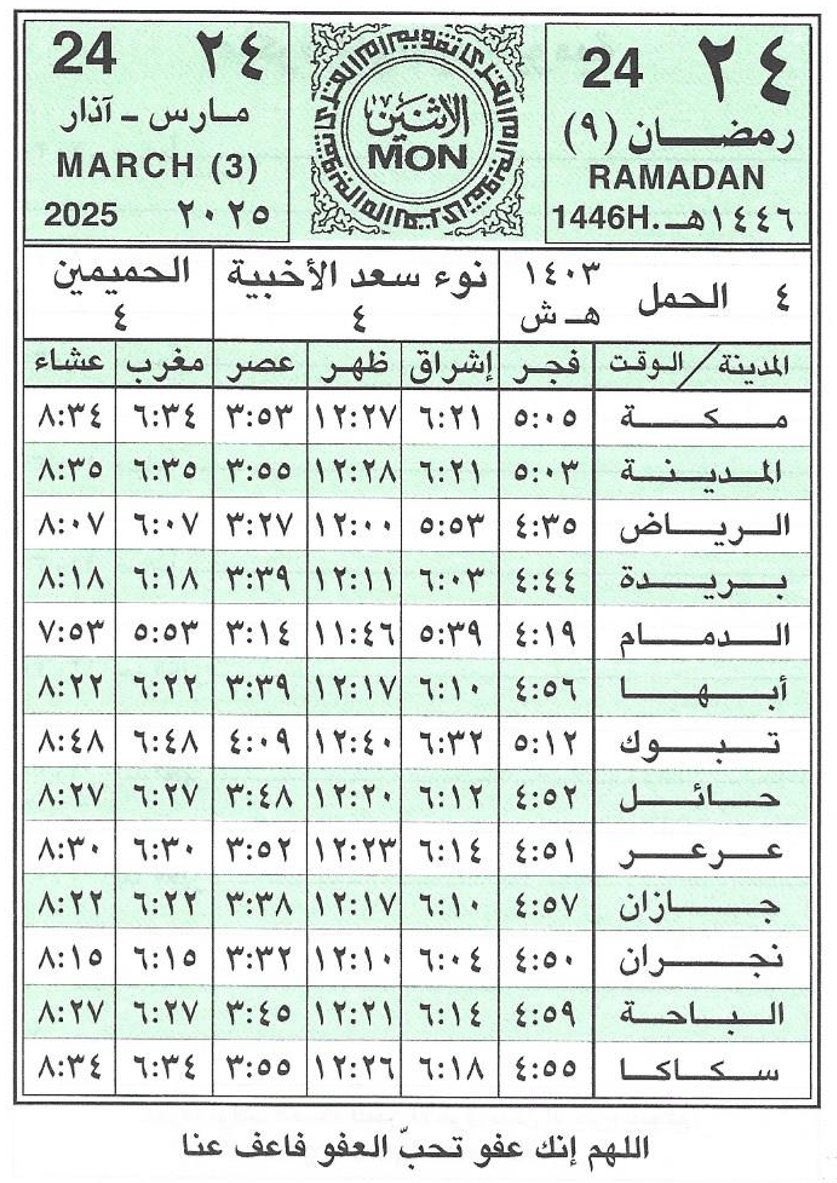 ٢٤ 24
رمضان (٩)
RAMADAN
1446H. ١٤٤٦هـ
الاثنين
MON
24 ٢٤
مارس - آذار
MARCH (3)
2025 ٢٠٢٥
٤ الحمل ١٤٠٣ هـ ش
نوء سعد الأخبية ٤
الحميمين ٤
المدينة / الوقت فجر إشراق ظهر عصر مغرب عشاء
مكة ٥:٠٥ ٦:٢١ ١٢:٢٧ ٣:٥٣ ٦:٣٤ ٨:٣٤
المدينة ٥:٠٣ ٦:٢١ ١٢:٢٨ ٣:٥٥ ٦:٣٥ ٨:٣٥
الرياض ٤:٣٥ ٥:٥٣ ١٢:٠٠ ٣:٢٧ ٦:٠٧ ٨:٠٧
بريدة ٤:٤٤ ٦:٠٣ ١٢:١١ ٣:٣٩ ٦:١٨ ٨:١٨
الدمام ٤:١٩ ٥:٣٩ ١١:٤٦ ٣:١٤ ٥:٥٣ ٧:٥٣
أبها ٤:٥٦ ٦:١٠ ١٢:١٧ ٣:٣٩ ٦:٢٢ ٨:٢٢
تبوك ٥:١٢ ٦:٣٢ ١٢:٤٠ ٤:٠٩ ٦:٤٨ ٨:٤٨
حائل ٤:٥٢ ٦:١٢ ١٢:٢٠ ٣:٤٨ ٦:٢٧ ٨:٢٧
عرعر ٤:٥١ ٦:١٤ ١٢:٢٣ ٣:٥٢ ٦:٣٠ ٨:٣٠
جازان ٤:٥٧ ٦:١٠ ١٢:١٧ ٣:٣٨ ٦:٢٢ ٨:٢٢
نجران ٤:٥٠ ٦:٠٤ ١٢:١٠ ٣:٣٢ ٦:١٥ ٨:١٥
الباحة ٤:٥٩ ٦:١٤ ١٢:٢١ ٣:٤٥ ٦:٢٧ ٨:٢٧
سكاكا ٤:٥٥ ٦:١٨ ١٢:٢٦ ٣:٥٥ ٦:٣٤ ٨:٣٤
اللهم إنك عفو تحبّ العفو فاعف عنا